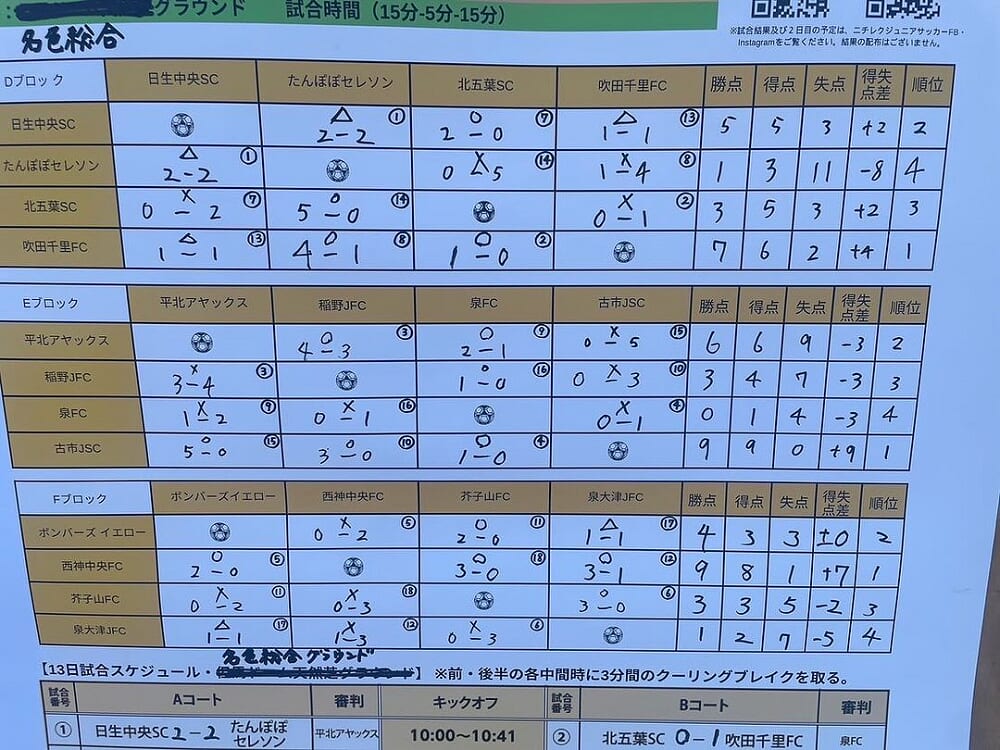 グラウンド 試合時間(15分-5分-15分)
※試合結果及び2日目の予定は、ニチレクジュニアサッカーFB・
Instagramをご覧ください。結果の配布はございません。
名色総合
Dブロック 日生中央SC たんぽぽセレソン 北五葉SC 吹田千里FC 勝点 得点 失点 得失点差 順位
日生中央SC △ 2-2 ① ○ 2-0 ⑦ △ 1-1 ⑬ 5 5 3 +2 2
たんぽぽセレソン △ 2-2 ① × 0-5 ⑭ × 1-4 ⑧ 1 3 11 -8 4
北五葉SC × 0-2 ⑦ ○ 5-0 ⑭ × 0-1 ② 3 5 3 +2 3
吹田千里FC △ 1-1 ⑬ ○ 4-1 ⑧ ○ 1-0 ② 7 6 2 +4 1
Eブロック 平北アヤックス 稲野JFC 泉FC 古市JSC 勝点 得点 失点 得失点差 順位
平北アヤックス ○ 4-3 ③ ○ 2-1 ⑨ × 0-5 ⑮ 6 6 9 -3 2
稲野JFC × 3-4 ③ ○ 1-0 ⑯ × 0-3 ⑩ 3 4 7 -3 3
泉FC × 1-2 ⑨ × 0-1 ⑯ × 0-1 ④ 0 1 4 -3 4
古市JSC ○ 5-0 ⑮ ○ 3-0 ⑩ ○ 1-0 ④ 9 9 0 +9 1
Fブロック ボンバーズイエロー 西神中央FC 芥子山FC 泉大津JFC 勝点 得点 失点 得失点差 順位
ボンバーズ イエロー × 0-2 ⑤ ○ 2-0 ⑪ △ 1-1 ⑰ 4 3 3 ±0 2
西神中央FC ○ 2-0 ⑤ ○ 3-0 ⑱ ○ 3-1 ⑫ 9 8 1 +7 1
芥子山FC × 0-2 ⑪ × 0-3 ⑱ ○ 3-0 ⑥ 3 3 5 -2 3
泉大津JFC △ 1-1 ⑰ × 1-3 ⑫ × 0-3 ⑥ 1 2 7 -5 4
名色総合グラウンド
【13日試合スケジュール・】 ※前・後半の各中間時に3分間のクーリングブレイクを取る。
試合番号 Aコート 審判 キックオフ 試合番号 Bコート 審判
① 日生中央SC 2-2 たんぽぽセレソン 平北アヤックス 10:00〜10:41 ② 北五葉SC 0-1 吹田千里FC 泉FC